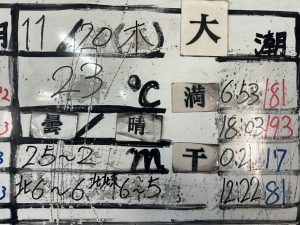 11/20(木) 大潮
23℃ 満 6:53 181
曇/晴 18:03 193
25~2m 干 0:21 17
北6~6 北東6~5 12:22 81